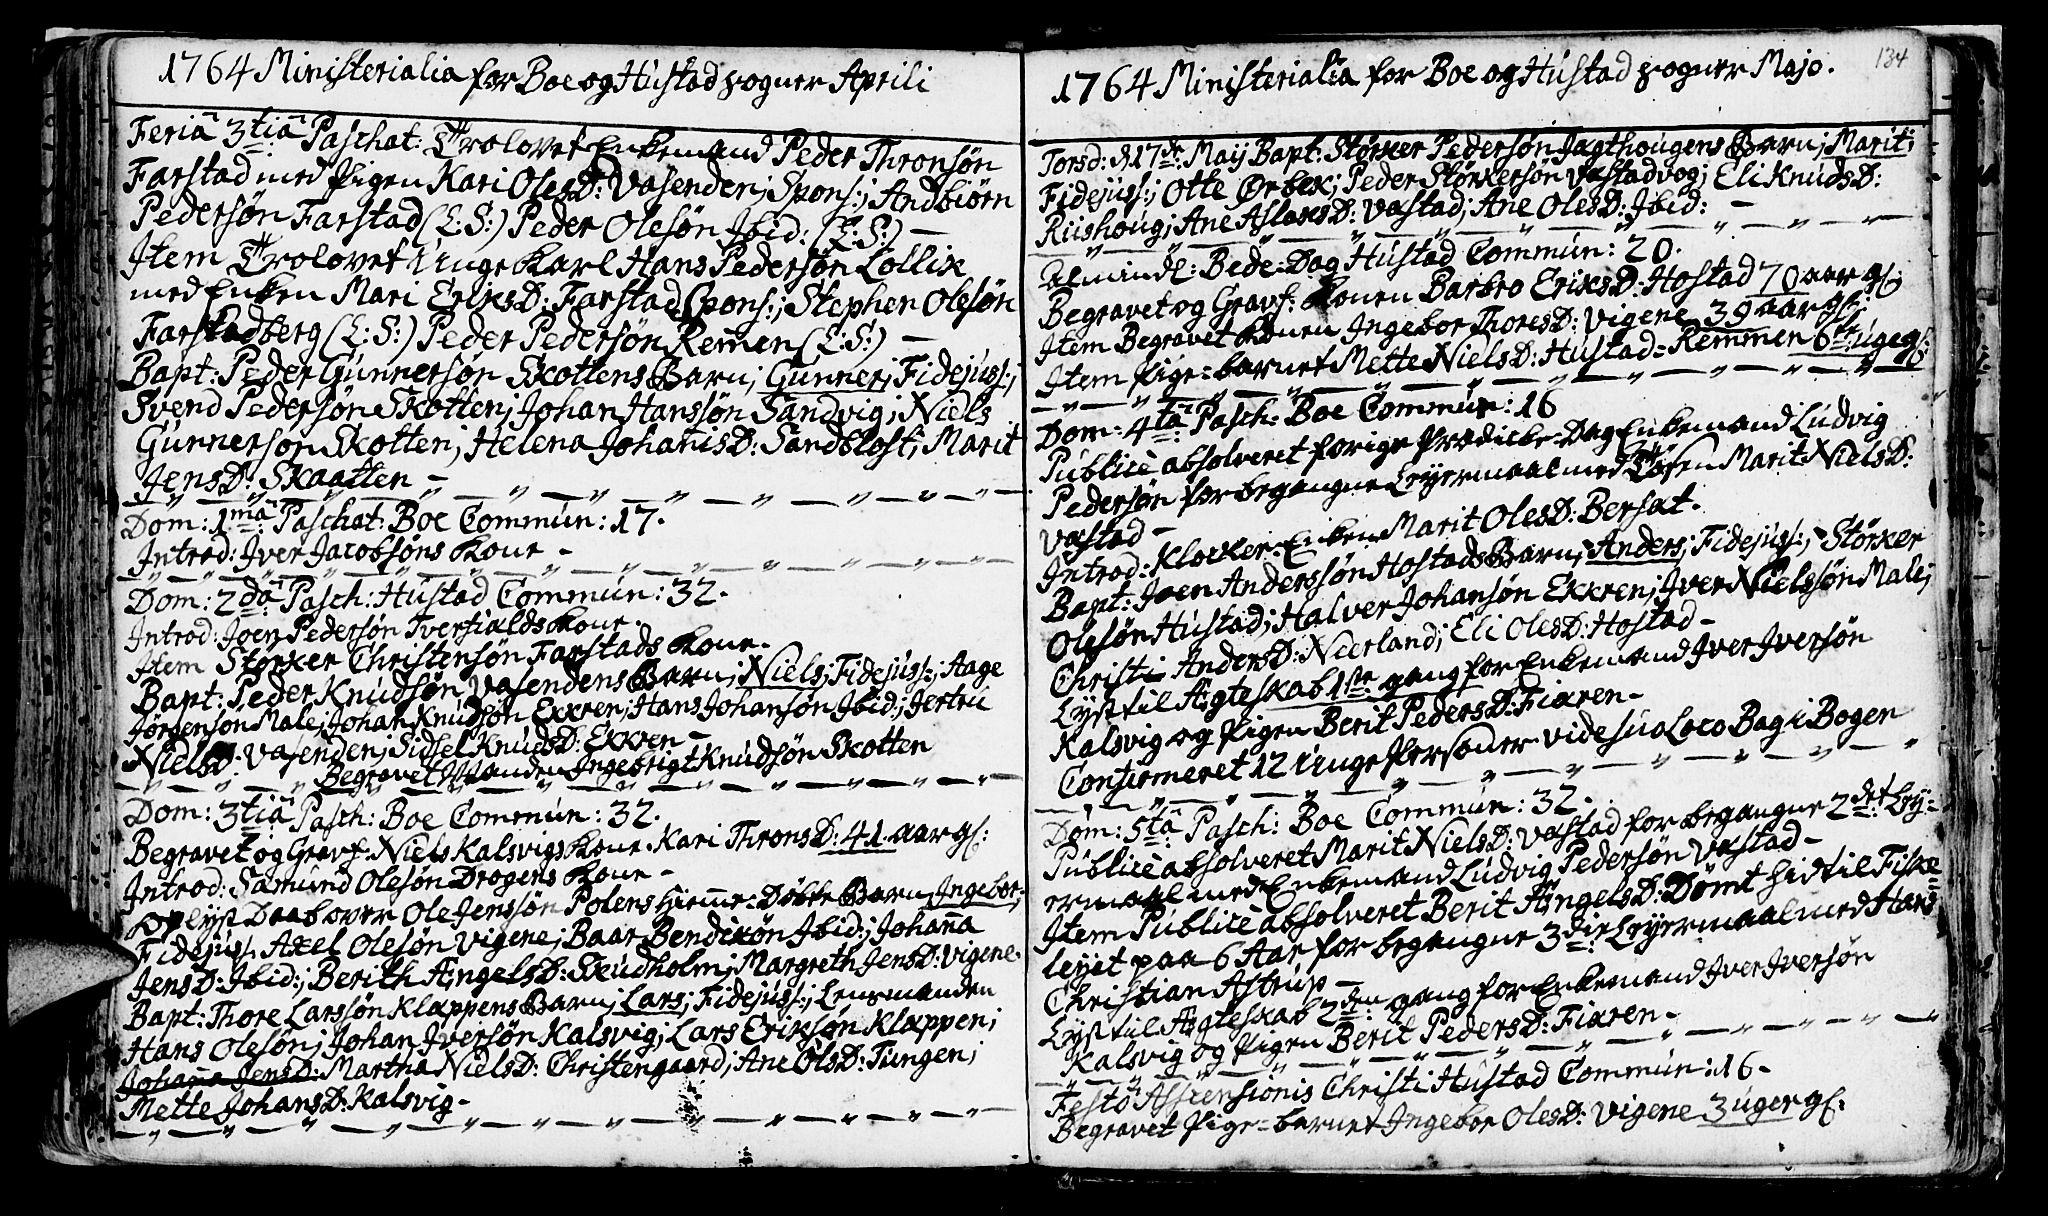 1764 Ministerialia for Boe og Hustad sogner Aprili
Feria 3tia Paschat: Trolovet Enkemand Peder Thronsøn
Farstad med Pigen Kari OlesD: Vasenden; Spons:; Andbiørn
Pedersøn Farstad (L:S:) Peder Olesøn Ibid: (L:S:) -
Item Trolovet Unge Karl Hans Pedersøn Lollik
med Enken Mari EriksD: Farstad Spons:; Stephen Olesøn
Farstadberg (L:S:) Peder Pedersøn Remen (L:S:) -
Bapt: Peder Gunnersøn Skottens Barn; Gunner; Fidejuss:;
Svend Pedersøn Skotten; Johan Hanssøn Sandvig; Niels
Gunnersøn Skotten; Helena JohannisD: Sandblost; Marit
JensD: Skaatten -
Dom: 1ma Paschat: Boe Commun: 17.
Introd: Iver Jacobsøns Kone -
Dom: 2da Pasch: Hustad Commun: 32.
Introd: Joen Pedersøn Tverfialds Kone.
Item Størker Christensøn Farstads Kone.
Bapt: Peder Knudsøn Vasendens Barn; Niels; Fidejuss:; Aage
Jørgensøn Male; Johan Knudsøn Ekren; Hans Johansøn Ibid:; Jertru
NielsD: Vasenden; Sidsel KnudsD: Ekren -
Begravet Manden Ingebrigt Knudsøn Skotten
Dom: 3tia Pasch: Boe Commun: 32.
Begravet og Gravf: Niels Kalsvigs Kone Kari ThronsD: 41 aar gl:
Introd: Samund Olesøn Drogens Kone -
Oplyst Daab over Ole Jenssøn Polens Hieme-Døbte Barn Ingebor;
Fidejus: Axel Olesøn Vigene; Baar Bendixøn Ibid:; Johanna
JensD: Ibid:; Berith AngelsD: Skudholm; Margreth JensD: Vigene.
Bapt: Thore Larssøn Klappens Barn; Lars; Fidejuss:; Lensmanden
Hans Olesøn; Johan Iversøn Kalsvig; Lars Eriksøn Klappen;
Johanna JensD: Martha NielsD: Christengaard; Ane OlsD: Tungen;
Mette JohansD: Kalsvig -
1764 Ministerialia for Boe og Hustad sogner Majo.
134
Torsd: d 17de Maij Bapt: Størker Pedersøn Jagthougens Barn; Marit;
Fidejuss:; Otte Ørbek; Peder Størkersøn Vastadvog; Eli KnudsD:
Riishoug; Ane AslaksD: Vastad; Ane OlesD: Ibid: -
Almindel: Bede-Dag Hustad Commun: 20.
Begravet og Gravf: Konen Barbro EriksD: Hostad 70 aar gl:
Item Begravet Konen Ingebor ThoresD: Vigene 39 aar gl:
Item Pige-barnet Mette NielsD: Hustad-Remmen 6 uge gl:
Dom: 4ta Pasch: Boe Commun: 16
Publice absolveret forige Prædicke-Dag Enkemand Ludvig
Pedersøn for begangne Leyermaal med Tøsen Marit NielsD:
Vastad -
Introd: Klocker-Enken Marit OlesD: Bersat.
Bapt: Joen Anderssøn Hostads Barn; Anders; Fidejuss:; Størker
Olesøn Hustad; Halver Johansøn Ekren; Iver Nielssøn Male;
Christi AndersD: Neerland; Eli OlesD: Hostad -
Lyst til Ægteskab 1ste gang for Enkemand Iver Iversøn
Kalsvig og Pigen Berit PedersD: Fiaren -
Confirmeret 12 Unge Personer vide suo Loco Bag i Bogen
Dom: 5ta Pasch: Boe Commun: 32.
Publice absolveret Marit NielsD: Vastad for begangne 2det Ley-
ermaal med Enkemand Ludvig Pedersøn Vastad -
Item Publice absolveret Berit AngelsD: Dømt hid til Fiske
lejet paa 6 Aar for begangne 3die Leyermaal med Hans
Christian Astrup -
Lyst til Ægteskab 2den gang for Enkemand Iver Iversøn
Kalsvig og Pigen Berit PedersD: Fiaren -
Festo Ascensionis Christi Hustad Commun: 16 -
Begravet Pige-barnet Ingebor OlesD: Vigene 3 uger gl: